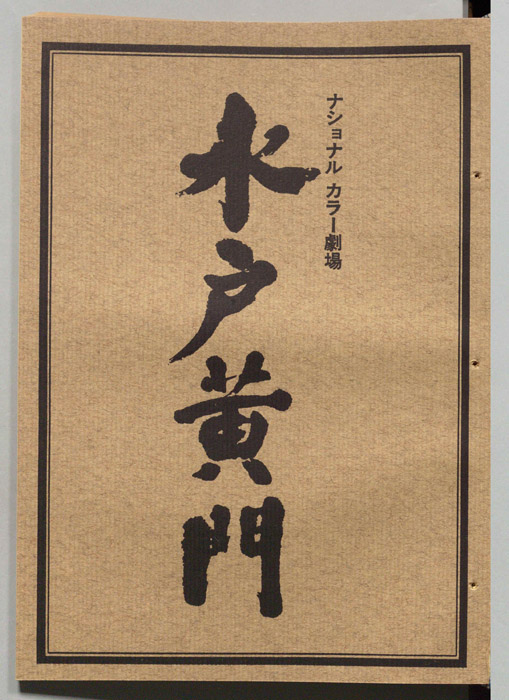 ナショナル カラー劇場
水戸黄門